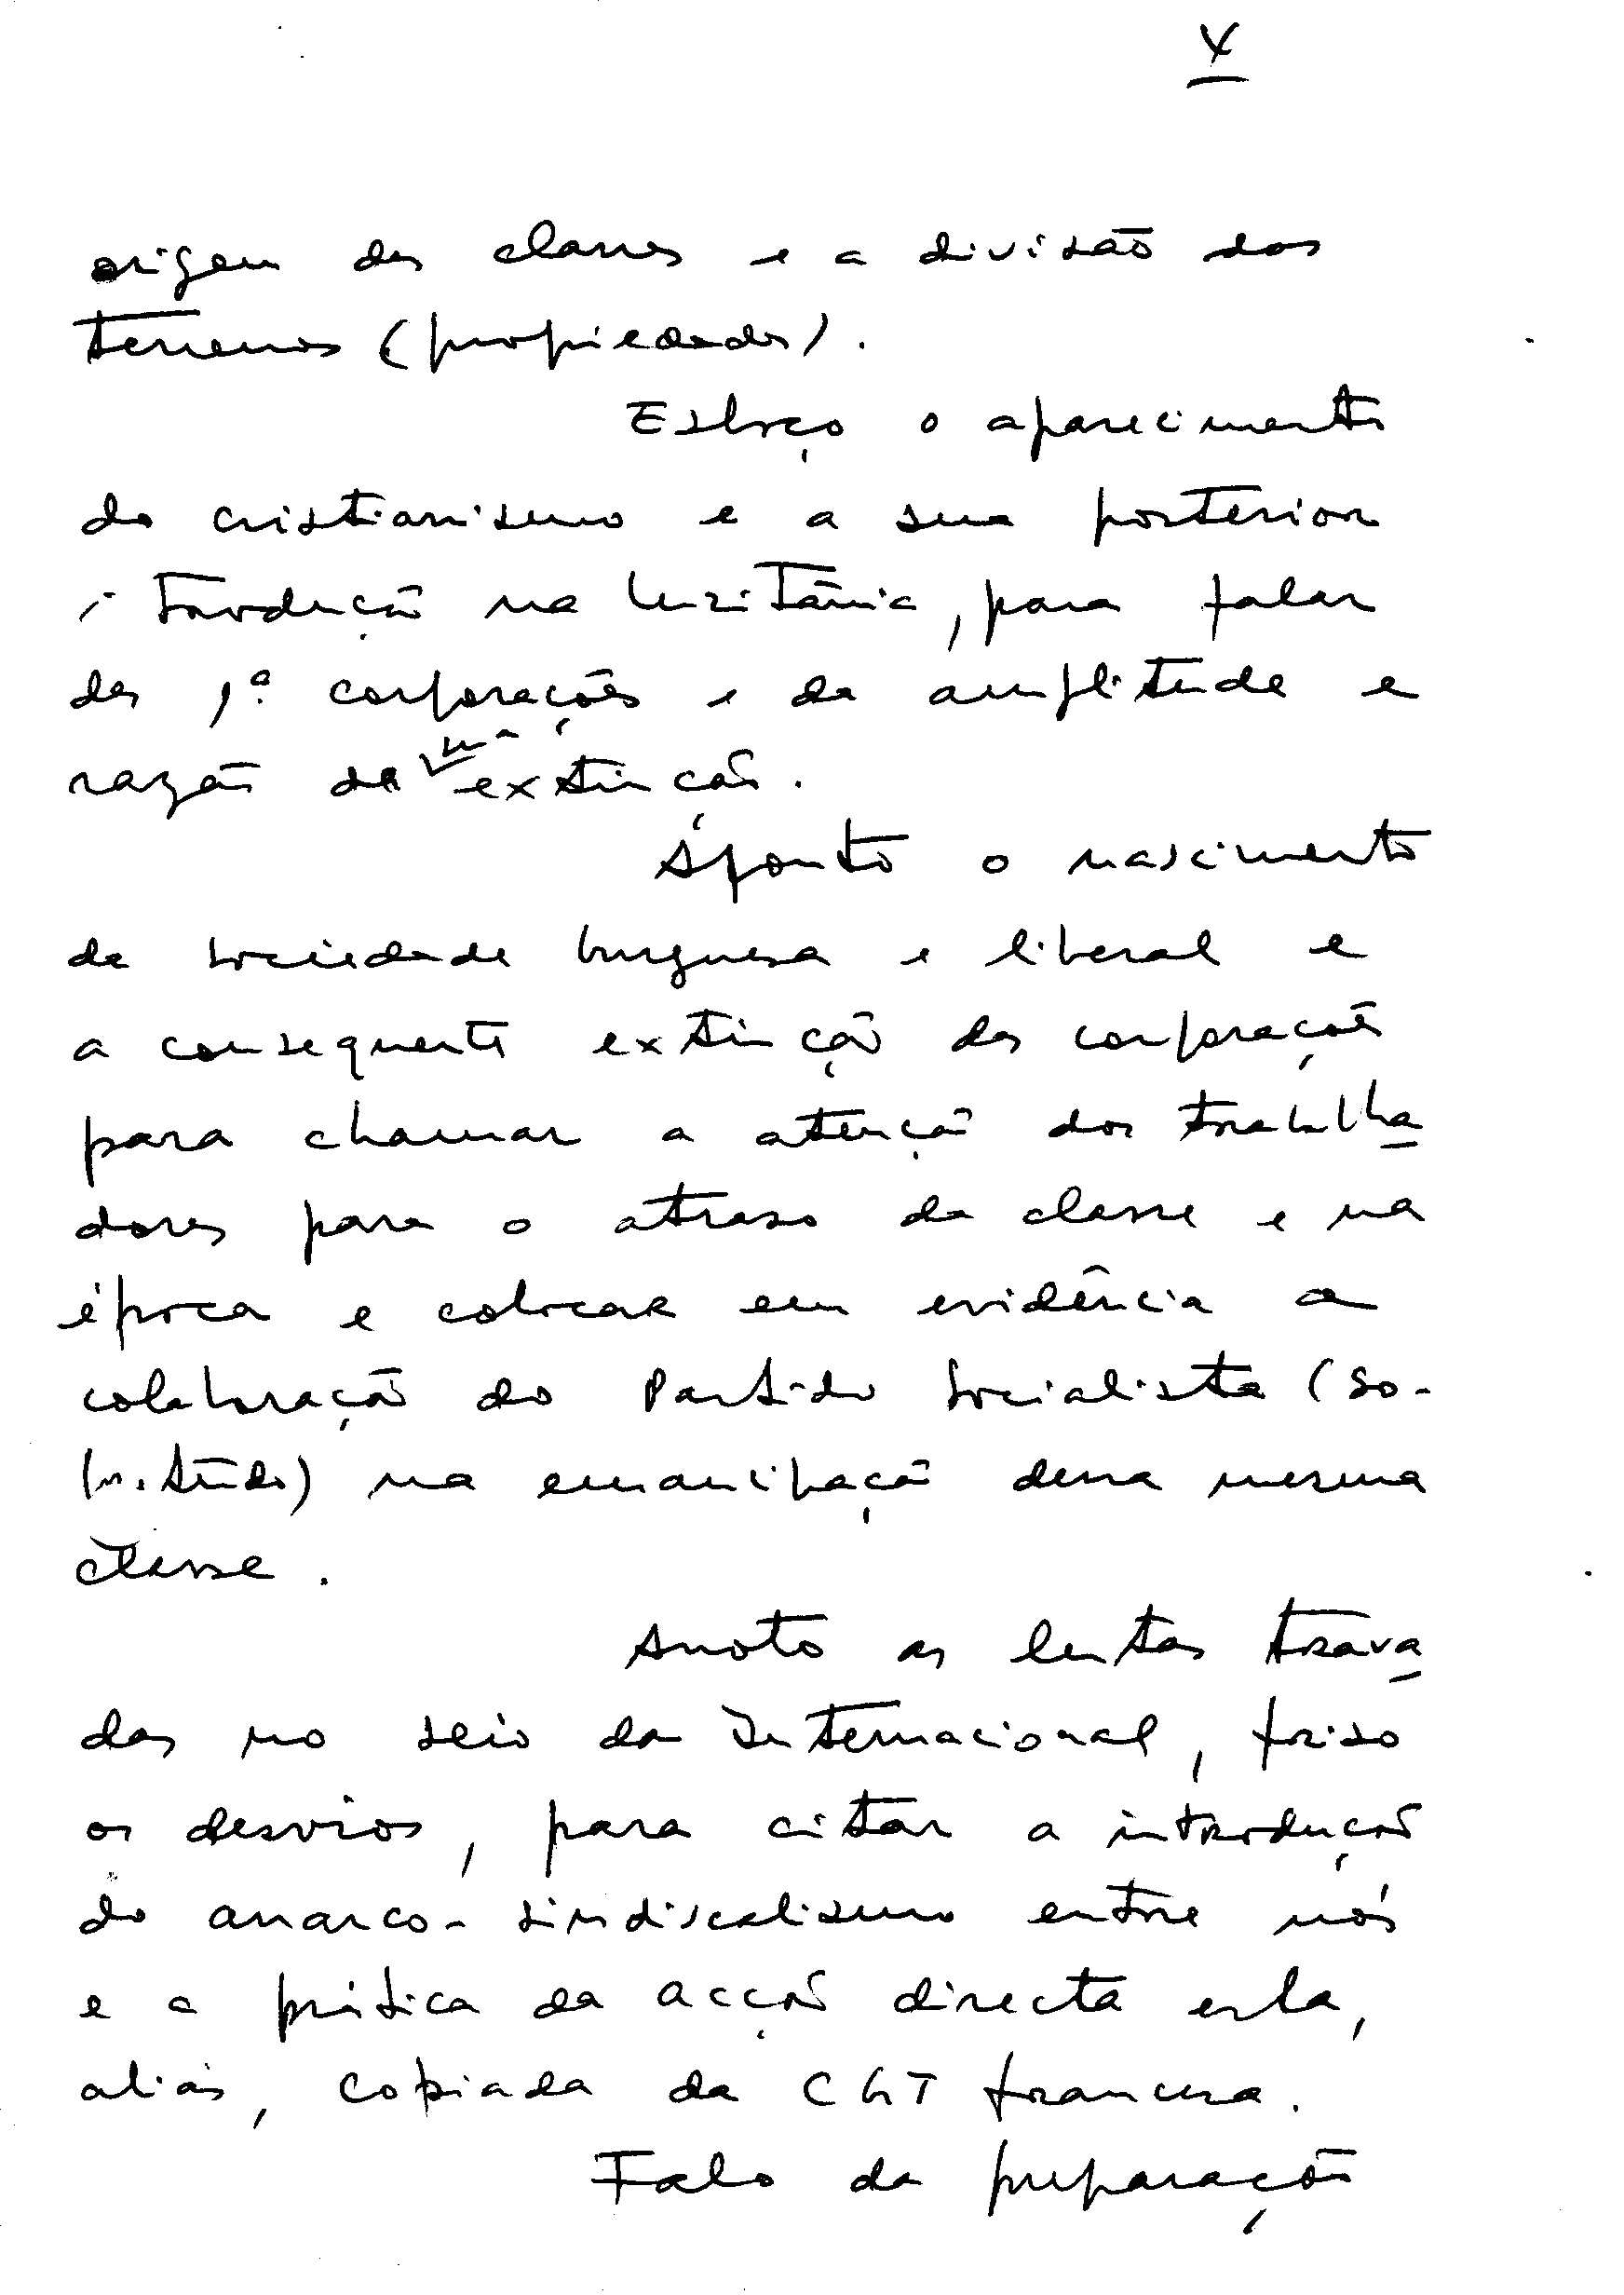 X
origem das classes e a divisão dos
terrenos (propriedades).
Esboço o aparecimento
do cristianismo e a sua posterior
introdução na Luzitânia, para falar
das 1.ª corporações e da amplitude e
razão da sua extinção.
Aponto o nascimento
da sociedade burguesa e liberal e
a consequente extinção das corporações
para chamar a atenção dos trabalha
dores para o atraso da classe e na
época e colocar em evidência a
colaboração do Partido Socialista (so-
bretudo) na emancipação dessa mesma
classe.
Anoto as lutas trava
das no seio da Internacional, friso
os desvios, para citar a introdução
do anarco-sindicalismo entre nós
e a prática da acção directa esta,
aliás, copiada da CGT francesa.
Falo da preparação